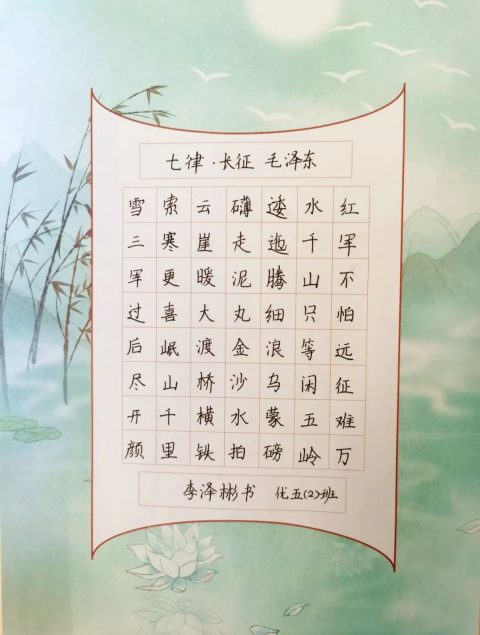 七律·长征 毛泽东
红军不怕远征难万
水千山只等闲五岭
逶迤腾细浪乌蒙磅
礴走泥丸金沙水拍
云崖暖大渡桥横铁
索寒更喜岷山千里
雪三军过后尽开颜
李泽彬书 优五(2)班